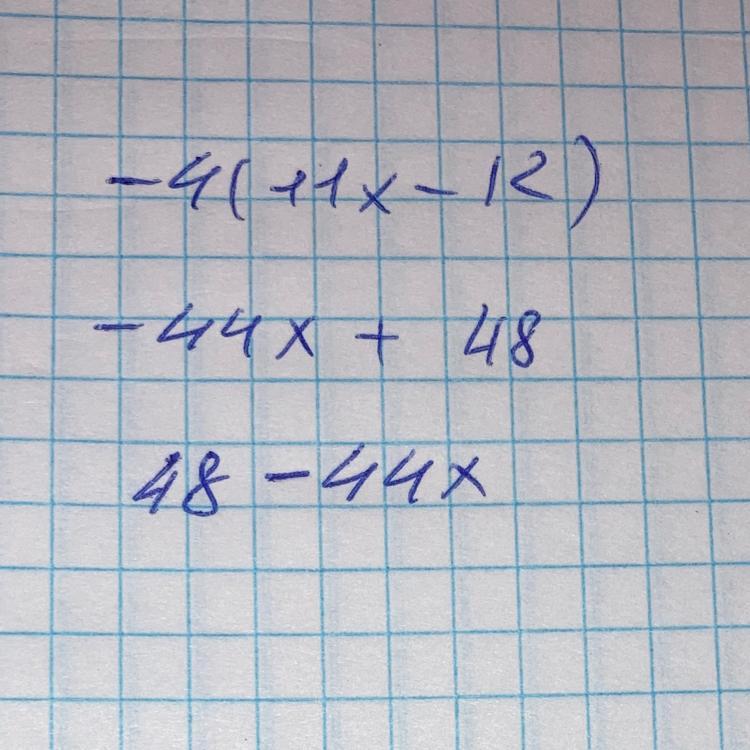 -4(11x - 12)
-44x + 48
48 - 44x